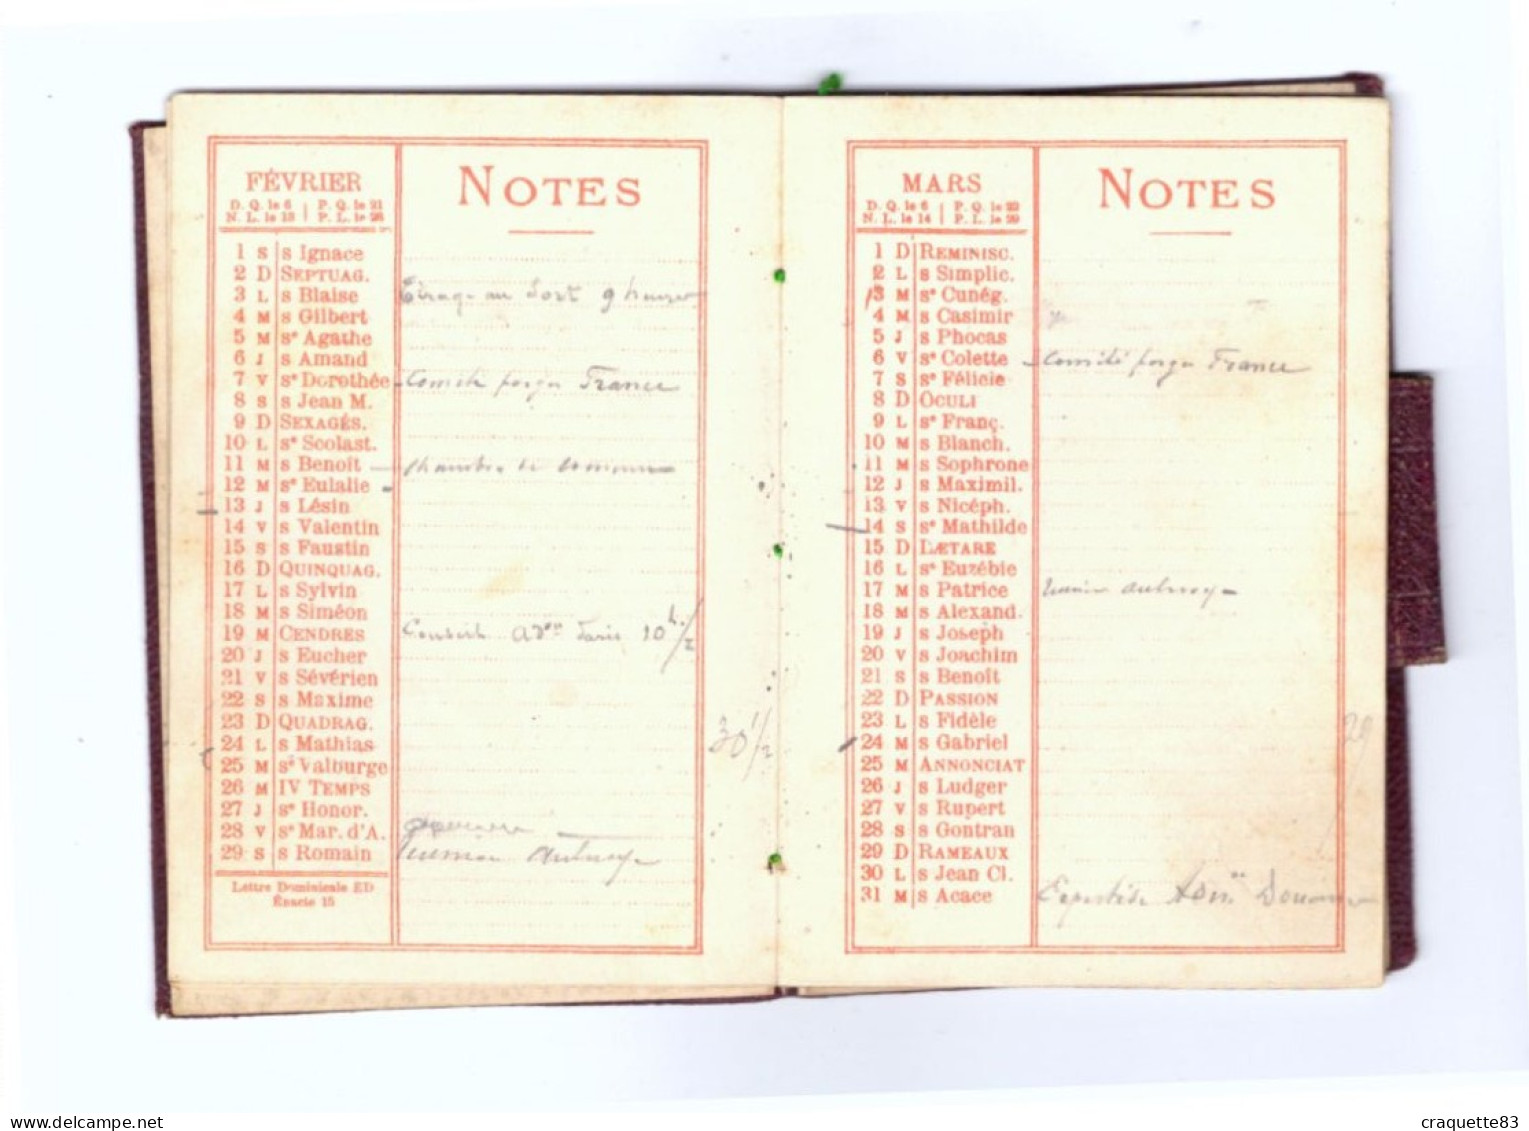 FÉVRIER
D. Q. le 6 | P. Q. le 21
N. L. le 13 | P. L. le 28
NOTES
1 S s Ignace
2 D SEPTUAG.
3 L s Blaise Tirage au Sort 9 heures
4 M s Gilbert
5 M se Agathe
6 J s Amand
7 V se Dorothée - Comité forges France
8 S s Jean M.
9 D SEXAGÉS.
10 L se Scolast.
11 M s Benoît - Chambre de Commerce
12 M se Eulalie
13 J s Lésin
14 V s Valentin
15 S s Faustin
16 D QUINQUAG.
17 L s Sylvin
18 M s Siméon
19 M CENDRES Conseil Adon Paris 10 h. 1/2
20 J s Eucher
21 V s Sévérien
22 S s Maxime
23 D QUADRAG.
24 L s Mathias
25 M se Valburge
26 M IV TEMPS
27 J se Honor.
28 V se Mar. d'A.
29 S s Romain Réunion Aulnoye
Lettre Dominicale ED
Épacte 15
30 1/2
MARS
D. Q. le 6 | P. Q. le 22
N. L. le 14 | P. L. le 29
NOTES
1 D REMINISC.
2 L s Simplic.
3 M se Cunég.
4 M s Casimir
5 J s Phocas
6 V se Colette - Comité forges France
7 S se Félicie
8 D OCULI
9 L se Franç.
10 M s Blanch.
11 M s Sophrone
12 J s Maximil.
13 V s Nicéph.
14 S se Mathilde
15 D LÆTARE
16 L se Euzébie
17 M s Patrice Réunion Aulnoye -
18 M s Alexand.
19 J s Joseph
20 V s Joachim
21 S s Benoît
22 D PASSION
23 L s Fidèle
24 M s Gabriel
25 M ANNONCIAT
26 J s Ludger
27 V s Rupert
28 S s Gontran
29 D RAMEAUX
30 L s Jean Cl.
31 M s Acace Expertise Douanes
29
craquette83